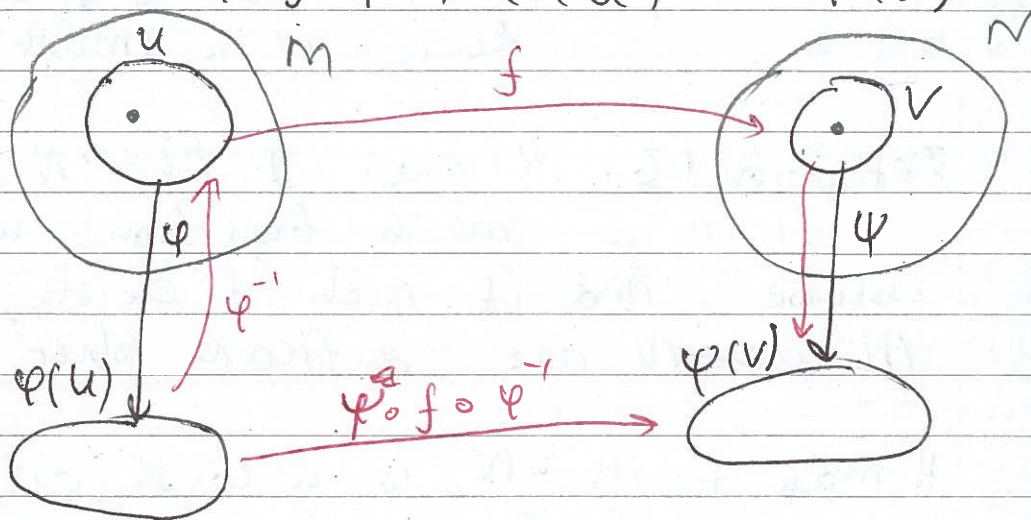 U M N
f
V
φ ψ
φ⁻¹
φ(U) ψ(V)
ψ∘f∘φ⁻¹